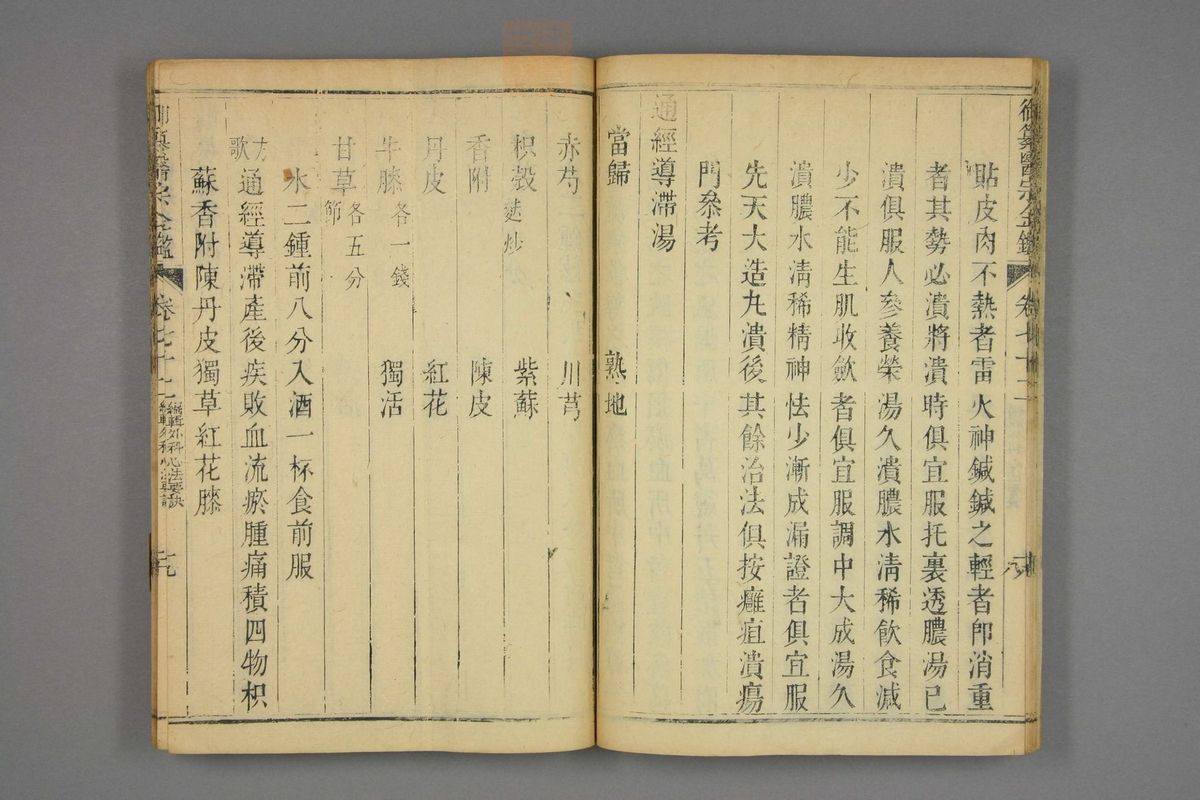 貼皮肉不熱者雷火神鍼鍼之輕者卽消重
者其勢必潰將潰時俱宜服托裏透膿湯已
潰俱服人參養榮湯久潰膿水清稀飮食減
少不能生肌收斂者俱宜服調中大成湯久
潰膿水清稀精神怯少漸成漏證者俱宜服
先天大造丸潰後其餘治法俱按癰疽潰瘍
門叅考
通經導滯湯
當歸 熟地
赤芍 川芎
枳殼麩炒 紫蘇
香附 陳皮
丹皮 紅花
牛膝各一錢 獨活
甘草節各五分
水二鍾前八分入酒一杯食前服
方歌 通經導滯產後疾敗血流瘀腫痛積四物枳
蘇香附陳丹皮獨草紅花膝
御纂醫宗金鑑 卷七十二 編輯外科心法要訣